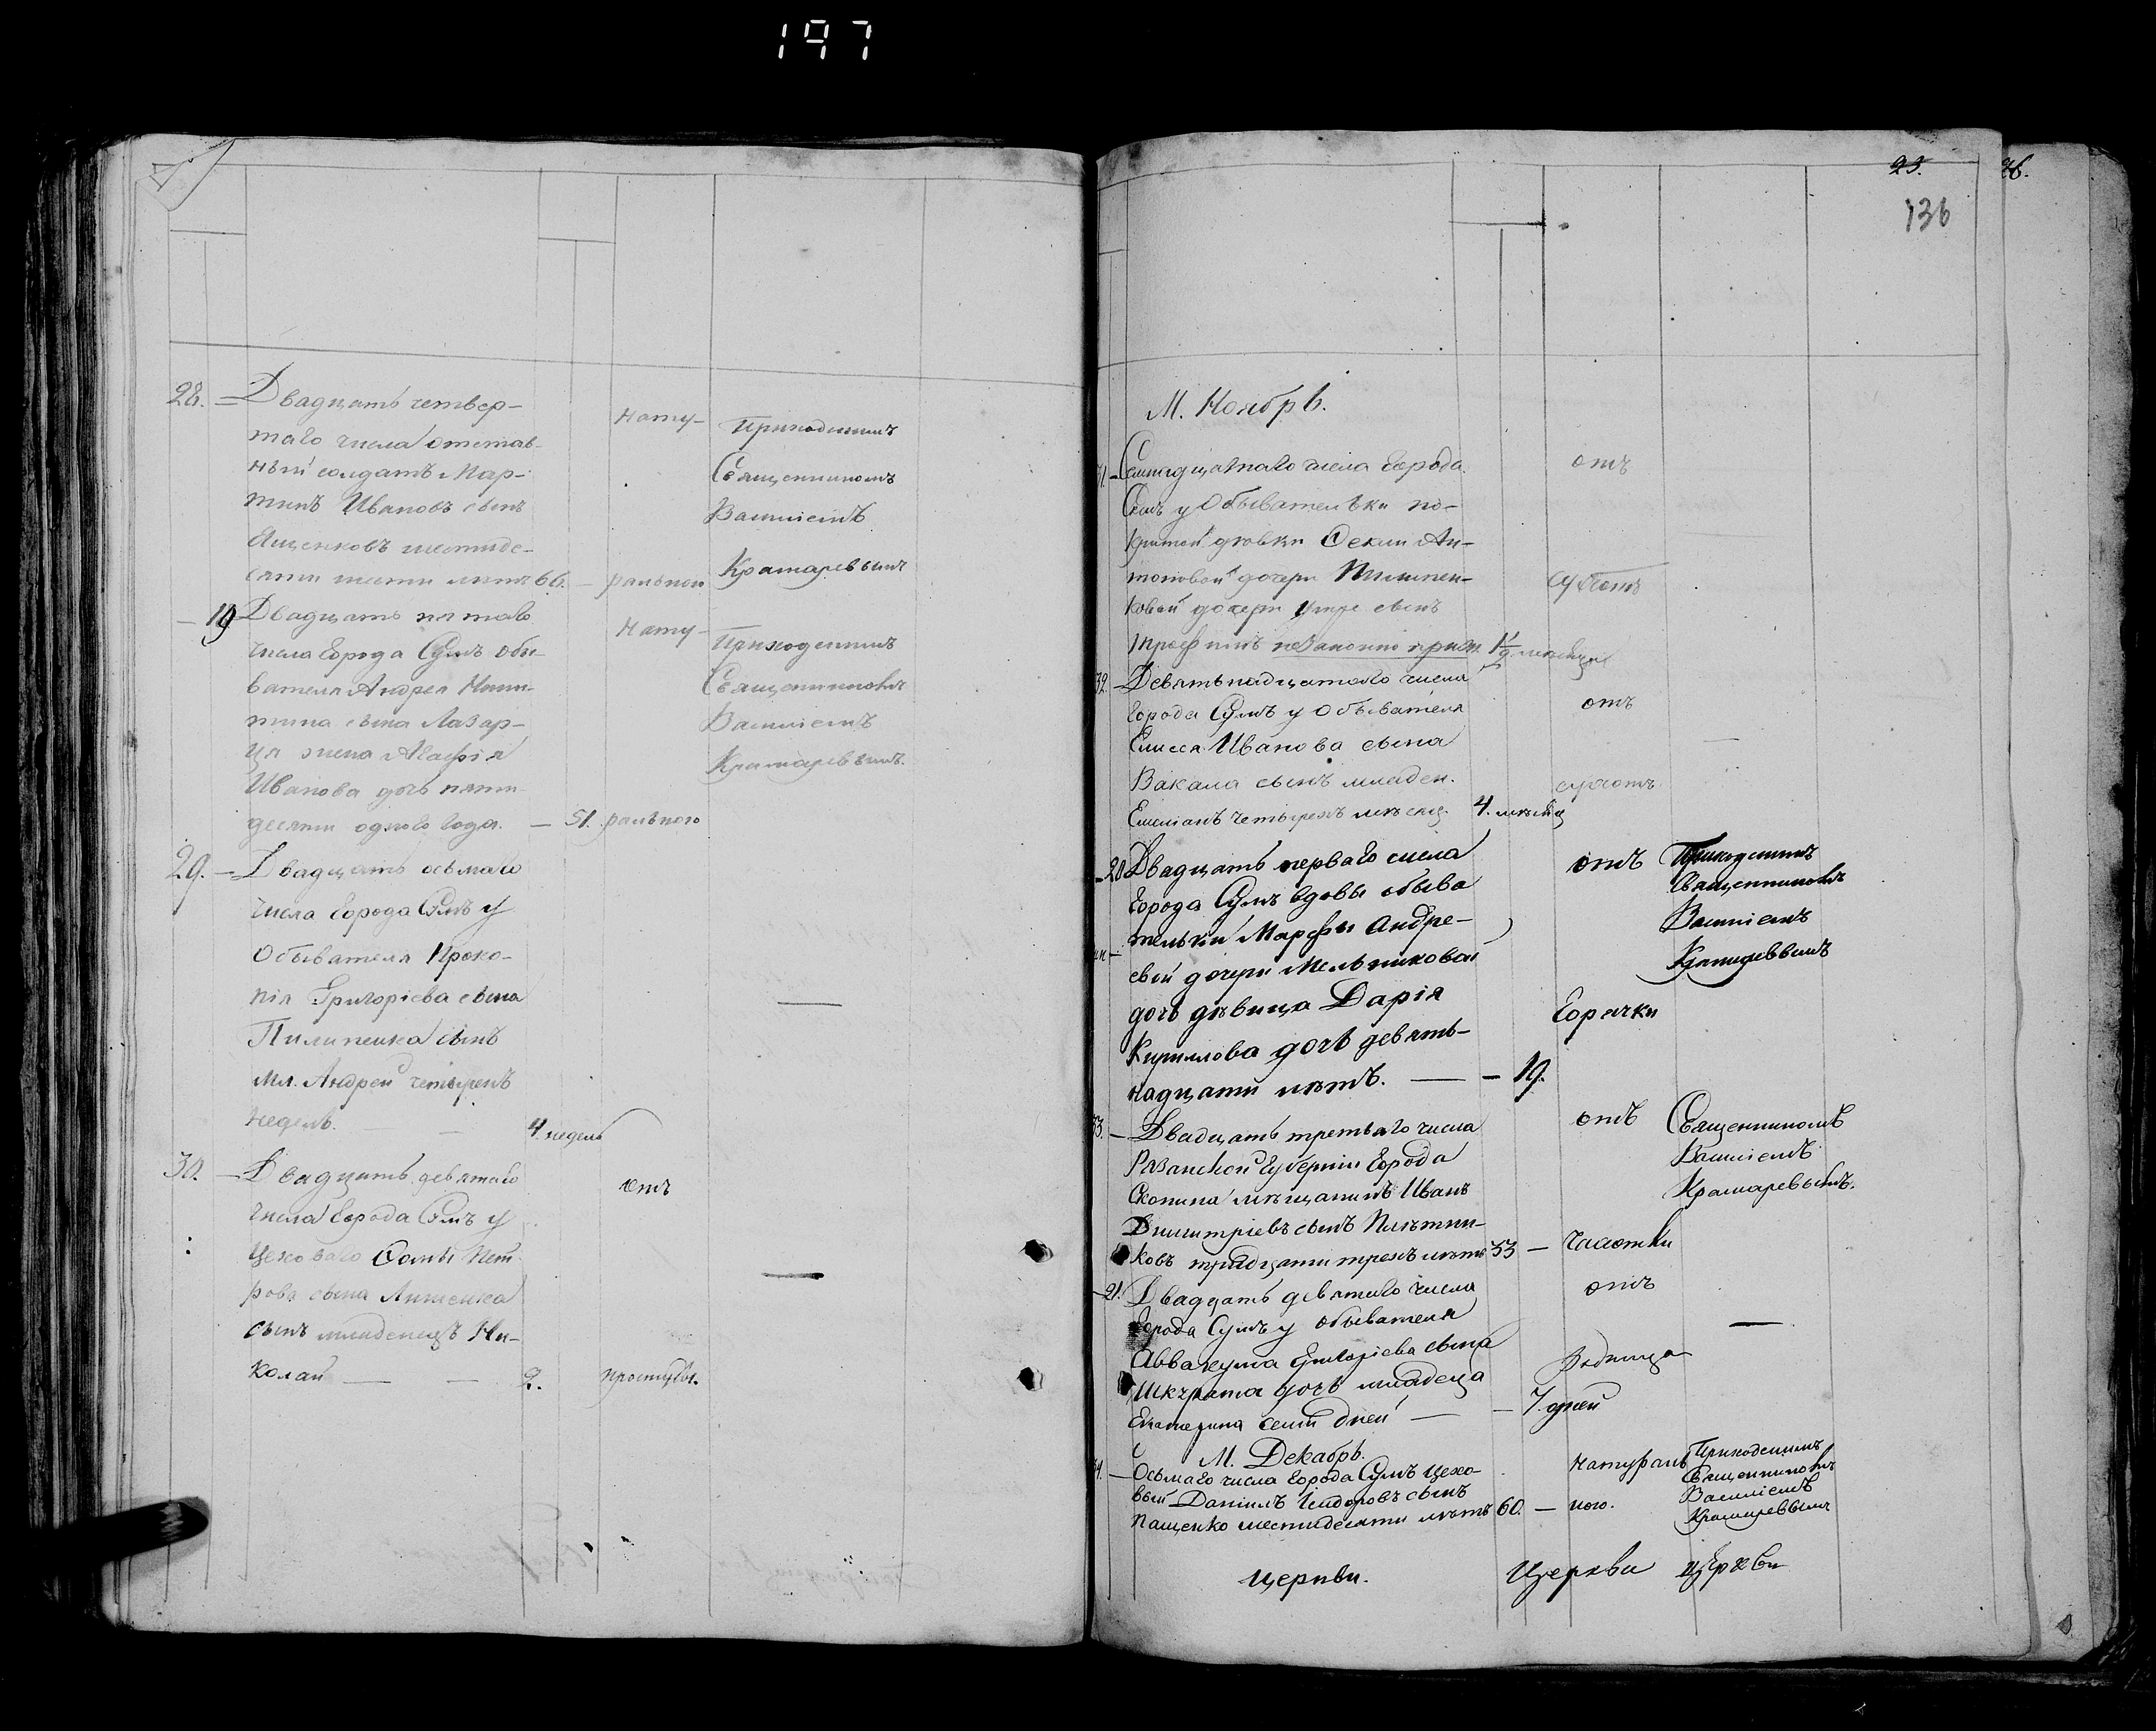 197
28. — Двадцать четвер-
таго числа отстав-
ный солдатъ Мар-
тинъ Ивановъ сынъ
Ященковъ шестиде-
сяти шести летъ 66. —
нату-
ральной
Приходскимъ
Священникомъ
Василіемъ
Крамаревымъ
— 19 Двадцать пятаго
числа города Сумъ обы-
вателя Андрея Ники-
тина сына Лазар-
ця жена Агафія
Иванова дочь пяти-
десяти одного года. — 51.
нату-
ральною
Приходскимъ
Священникомъ
Василіемъ
Крамаревымъ.
29. — Двадцать осьмаго
числа города Сумъ у
Обывателя Проко-
пія Григоріева сына
Пилипенка сынъ
мл. Андрей четырехъ
недель. — — 4. недель
—
30. — Двадцать девятаго
числа города Сумъ у
цеховаго Фомы Пет-
рова сына
сынъ младенецъ Ни-
колай — — 2.
отъ
простуды.
—
23. 26.
136
М. Ноябрь.
31. — Семнадцатаго числа города
Сумъ у Обывательки по-
критой дѣвки Феклы Ан-
тоновой дочери
ковой дочери сынъ
Трофимъ незаконно прж. 1½ месяца
отъ
сухотъ
32. — Девятьнадцатаго числа
города Сумъ у Обывателя
Елисея Иванова сына
Вакала сынъ младен.
Емеліанъ четырехъ мѣсяц. 4. мѣсяц
отъ
сухотъ
—
— 20 Двадцать перваго числа
города Сумъ вдовы обыва
тельки Марфы Андре-
евой дочери Мельниковой
дочь дѣвица Дарія
Кириллова дочь девять-
надцати лѣтъ. — — 19.
отъ
горячки
Приходскимъ
Священникомъ
Василіемъ
Крамаревымъ
33. — Двадцать третьяго числа
Рязанской Губерніи города
Скопина мѣщанинъ Иванъ
Димитріевъ сынъ
ковъ тридцати трехъ лѣтъ 33 —
отъ
чахотки
Священникомъ
Василіемъ
Крамаревымъ.
— 21. Двадцать девятаго числа
города Сумъ у обывателя
Аввакума Григоріева сына
Шкурата дочь младенца
Екатерина семи дней — — 7. дней
отъ
родимца
—
М. Декабрь.
34. — Осьмаго числа города Сумъ цехо-
вый Даніилъ Исидоровъ сынъ
Пащенко шестидесяти лѣтъ 60. —
натураль
ною.
Приходскимъ
Священникомъ
Василіемъ
Крамаревымъ
Церкви. Церкви Церкви